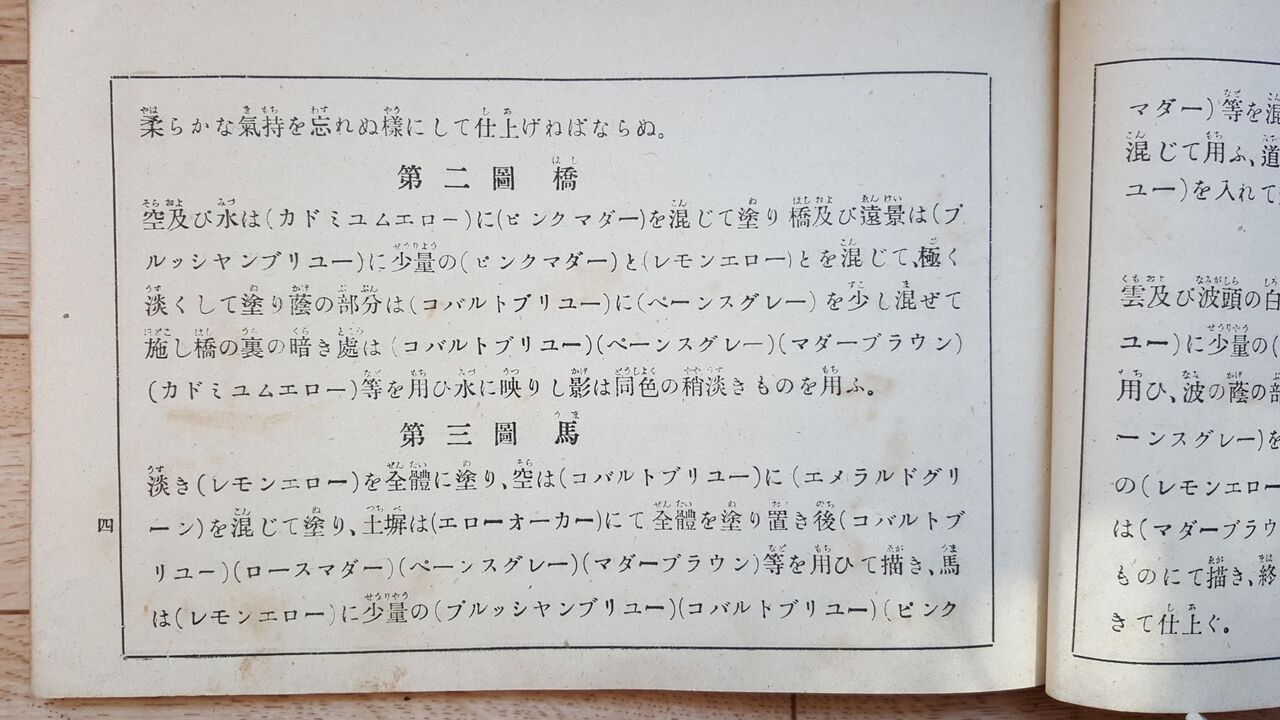 柔らかな氣持を忘れぬ樣にして仕上げねばならぬ。
第二圖 橋
空及び水は(カドミユムエロー)に(ピンクマダー)を混じて塗り橋及び遠景は(プ
ルッシヤンブリユー)に少量の(ピンクマダー)と(レモンエロー)とを混じて、極く
淡くして塗り蔭の部分は(コバルトブリユー)に(ペーンスグレー)を少し混ぜて
施し橋の裏の暗き處は(コバルトブリユー)(ペーンスグレー)(マダーブラウン)
(カドミユムエロー)等を用ひ水に映りし影は同色の稍淡きものを用ふ。
第三圖 馬
淡き(レモンエロー)を全體に塗り、空は(コバルトブリユー)に(エメラルドグリ
ーン)を混じて塗り、土塀は(エローオーカー)にて全體を塗り置き後(コバルトブ
リユー)(ロースマダー)(ペーンスグレー)(マダーブラウン)等を用ひて描き、馬
は(レモンエロー)に少量の(プルッシヤンブリユー)(コバルトブリユー)(ピンク
四
マダー)等を混
混じて用ふ、道
ユー)を入れて
雲及び波頭の白
ユー)に少量の(
用ひ、波の蔭の部
ーンスグレー)を
の(レモンエロー
は(マダーブラウ
ものにて描き、終
きて仕上ぐ。